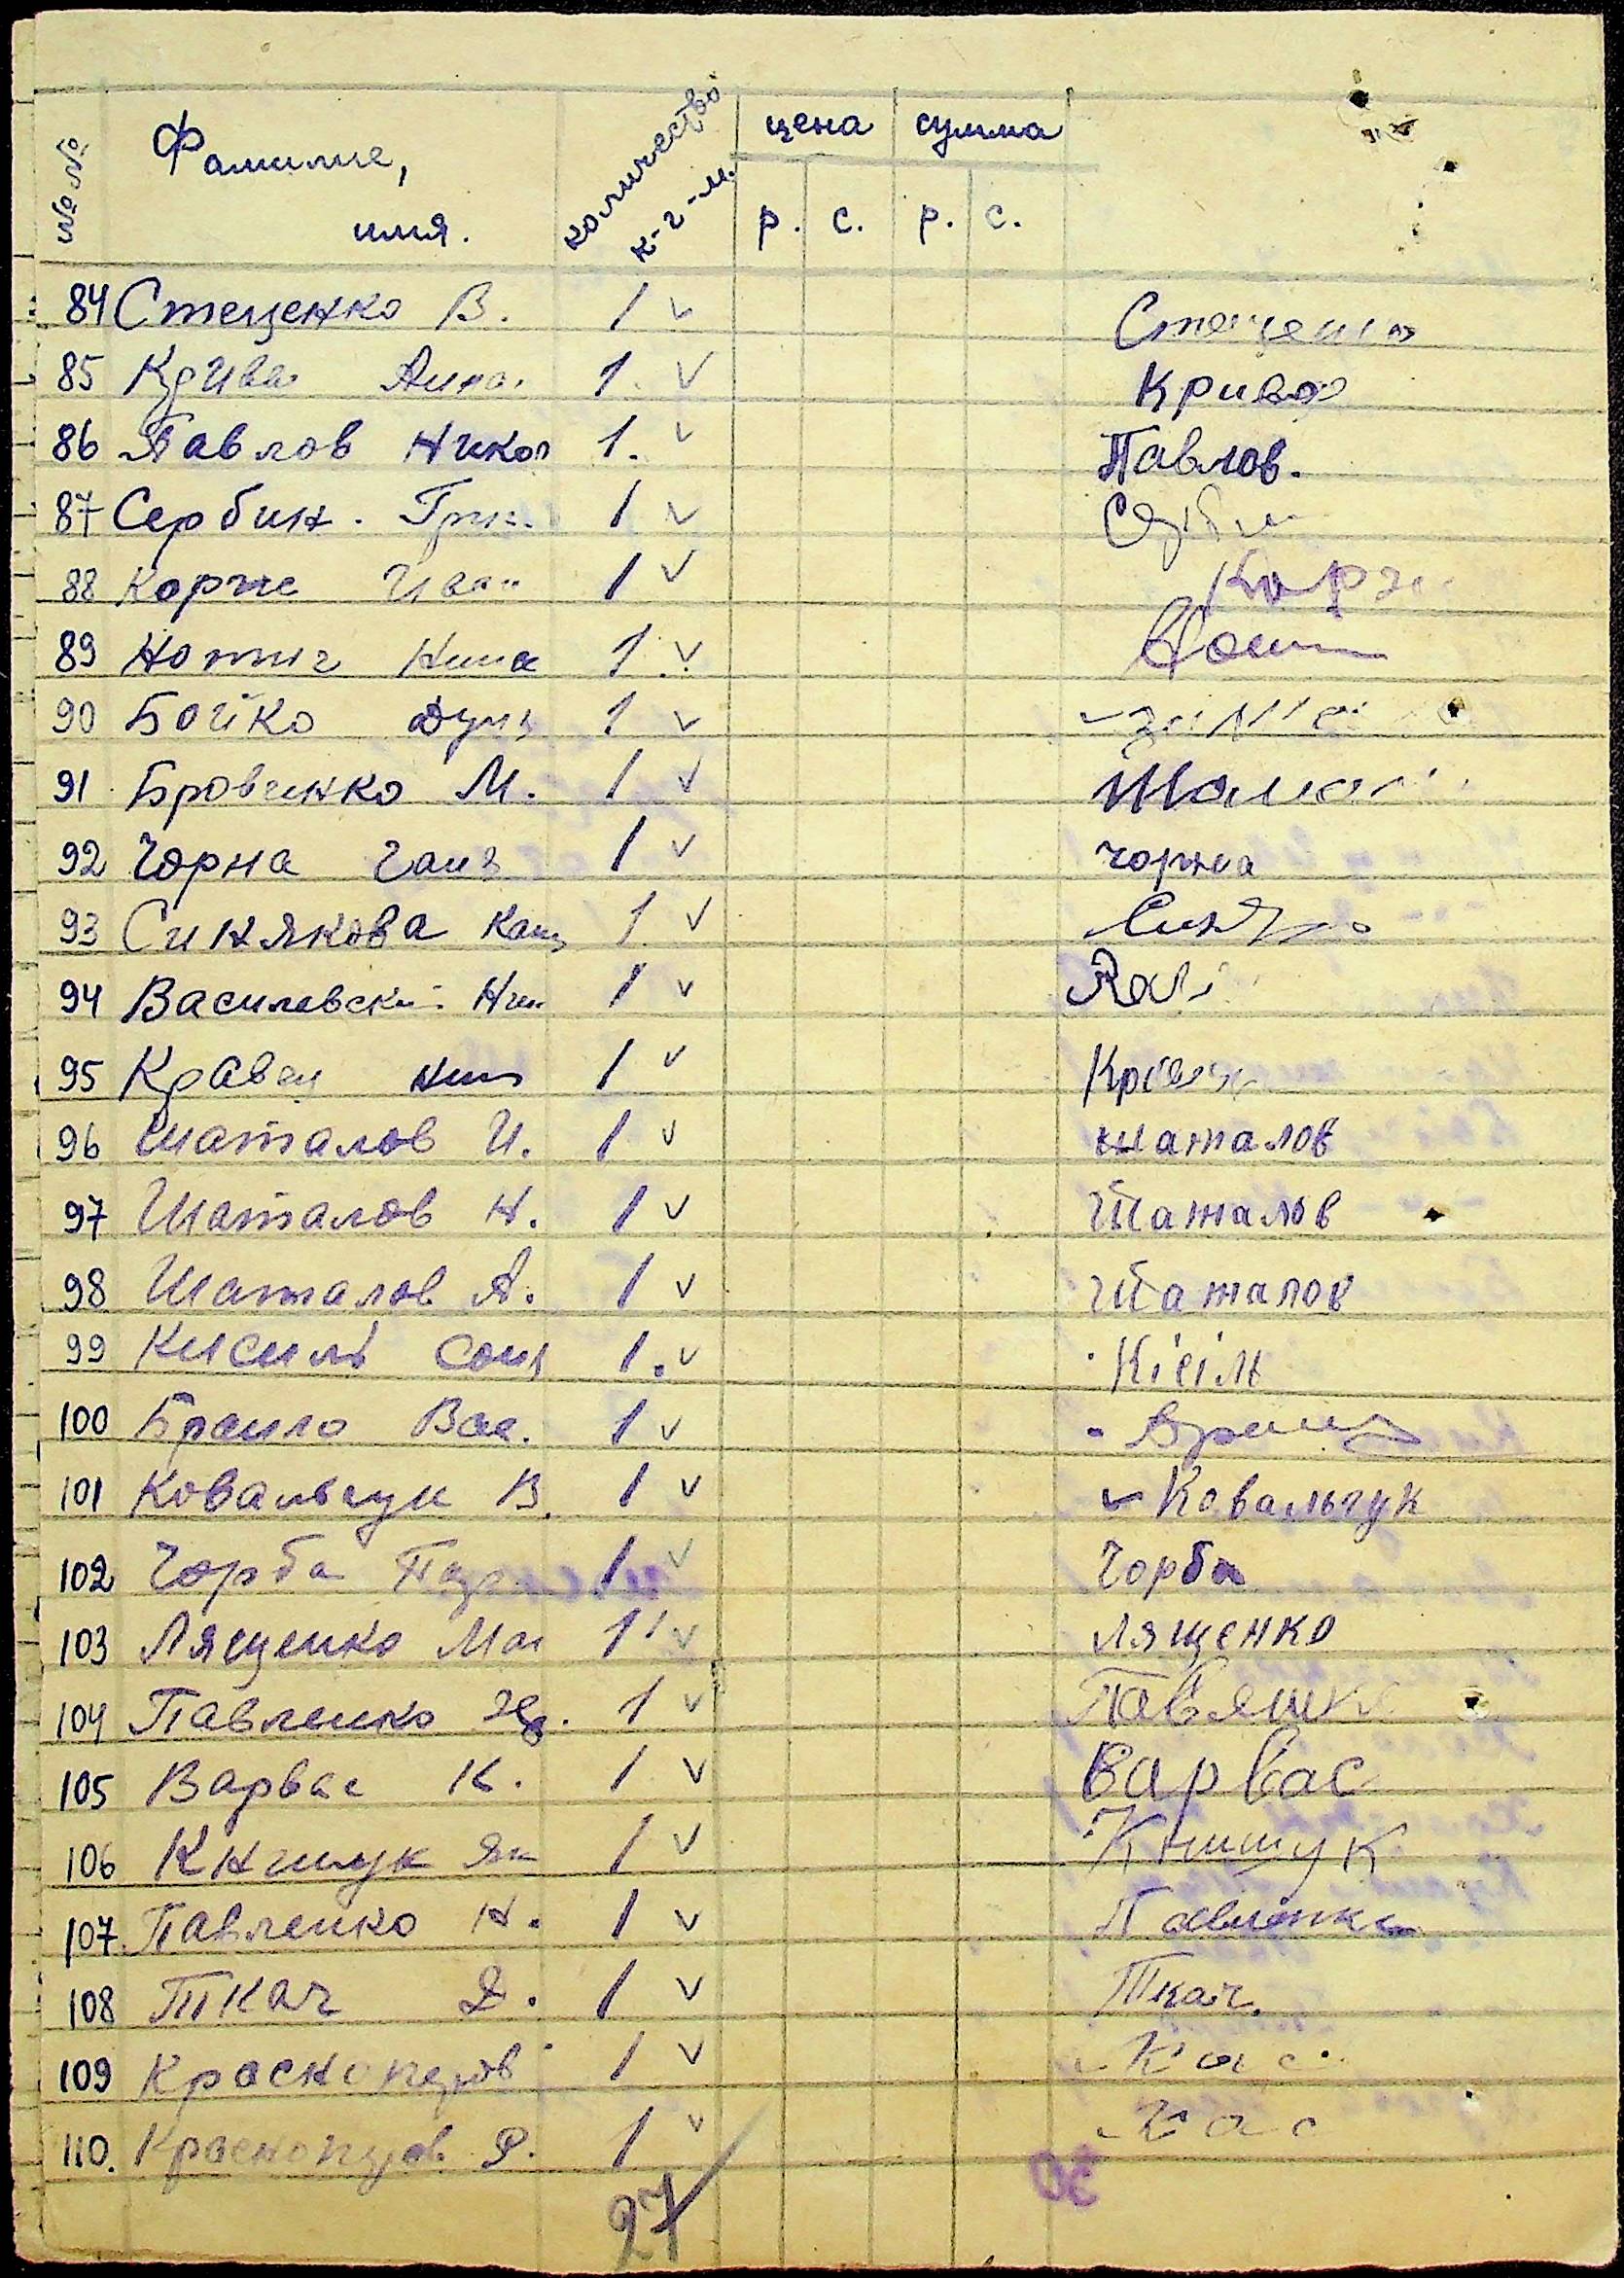 №№ Фамилие, имя. количество к-г-м. цена сумма
р. с. р. с.
84 Стеценко В. 1 ✓ Стеценко
85 Крива Анна. 1. ✓ Крива
86 Павлов Никол 1. ✓ Павлов.
87 Сербин. Гри. 1 ✓
88 Корже Иван 1 ✓ Корж
89 Нина 1 ✓
90 Бойко Дуня 1 ✓
91 Бровченко М. 1 ✓
92 Чорна Ганя 1 ✓ Чорна
93 Синякова Кат 1. ✓
94 Василевский Ник 1 ✓
95 Кравец 1 ✓
96 Шаталов И. 1 ✓ Шаталов
97 Шаталов Н. 1 ✓ Шаталов
98 Шаталов А. 1 ✓ Шаталов
99 Кисиль Соня 1. ✓ Кісіль
100 Вас. 1 ✓
101 Ковальчук В. 1 ✓ ✓ Ковальчук
102 Чорба 1 ✓ Чорба
103 Лященко Ма 1 ✓ Лященко
104 Павленко 1 ✓
105 Варвас К. 1 ✓ Варвас
106 Книшук Як 1 ✓ Книшук
107. Павленко Н. 1 ✓ Павленко
108 Ткач Д. 1 ✓ Ткач.
109 Краснопёров 1 ✓
110. Р. 1 ✓
27
30